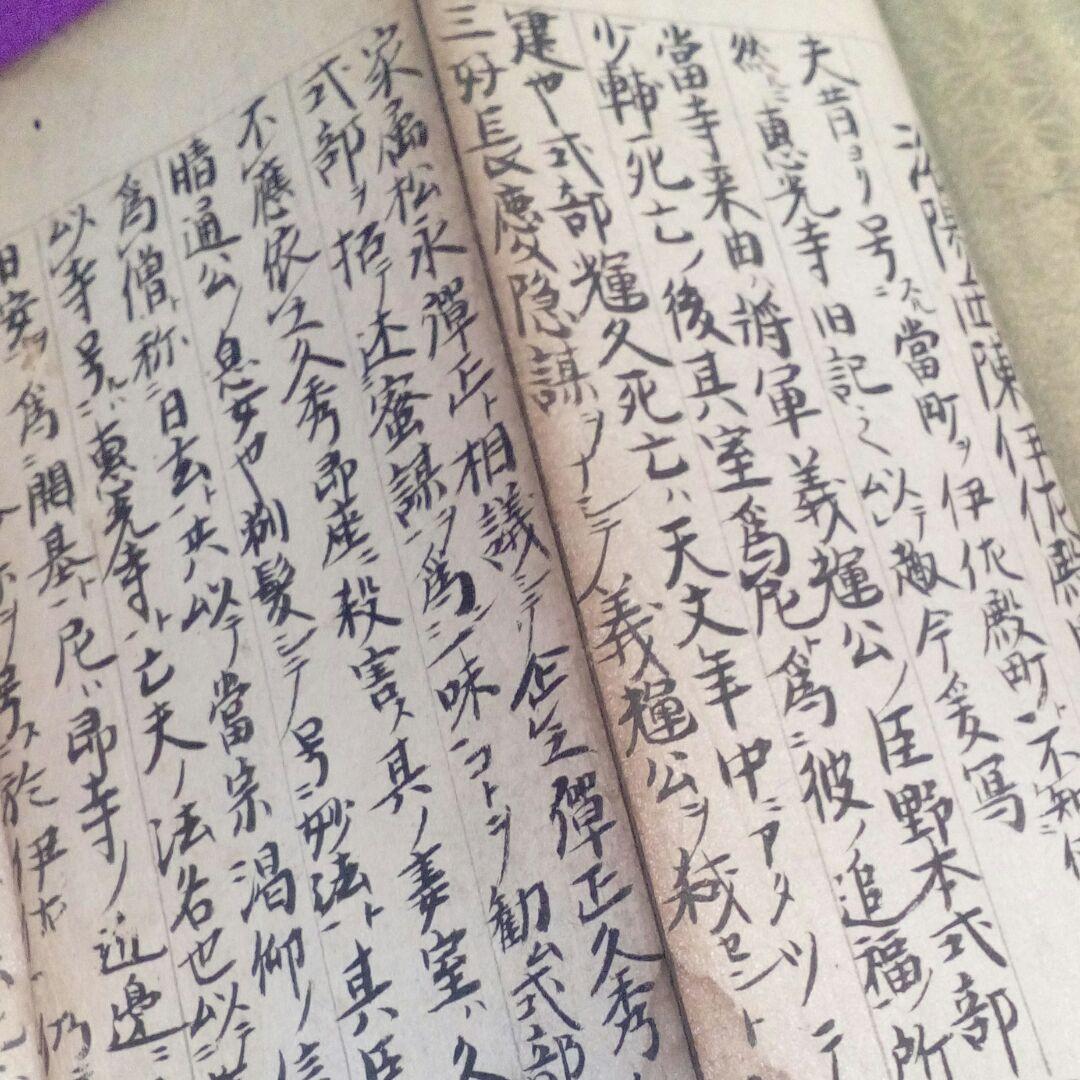 洛陽 陳伊佐殿町
夫昔ヨリ号ニ 當町ヲ伊佐殿町ト不知
然ニ惠光寺旧記之以テ趣今爰寫
當寺来由ハ將軍義輝公ノ臣野本式部
少輔死亡ノ後其室爲尼ト爲ニ彼ノ追福ノ所
建也式部輝久死亡ハ天文年中ニアタツテ
三好長慶隠謀ヲナシテ義輝公ヲ弑セント
家属松永彈正ト相議シテ企 彈正久秀
式部ヲ招テ述蜜謀ヲ爲一味コトヲ勸ム式部
不應依之久秀即座ニ殺害ス其ノ妻室ハ久
晴通公ノ息女也剃髮シテ号ニ妙法ト其
爲僧ト称ニ日玄ト共以テ當宗渇仰ノ信
以寺号ルハ惠光寺ト亡夫ノ法名也以テ
爲ニ開基ト尼ハ即寺ノ近邊ニ
号ス於伊佐